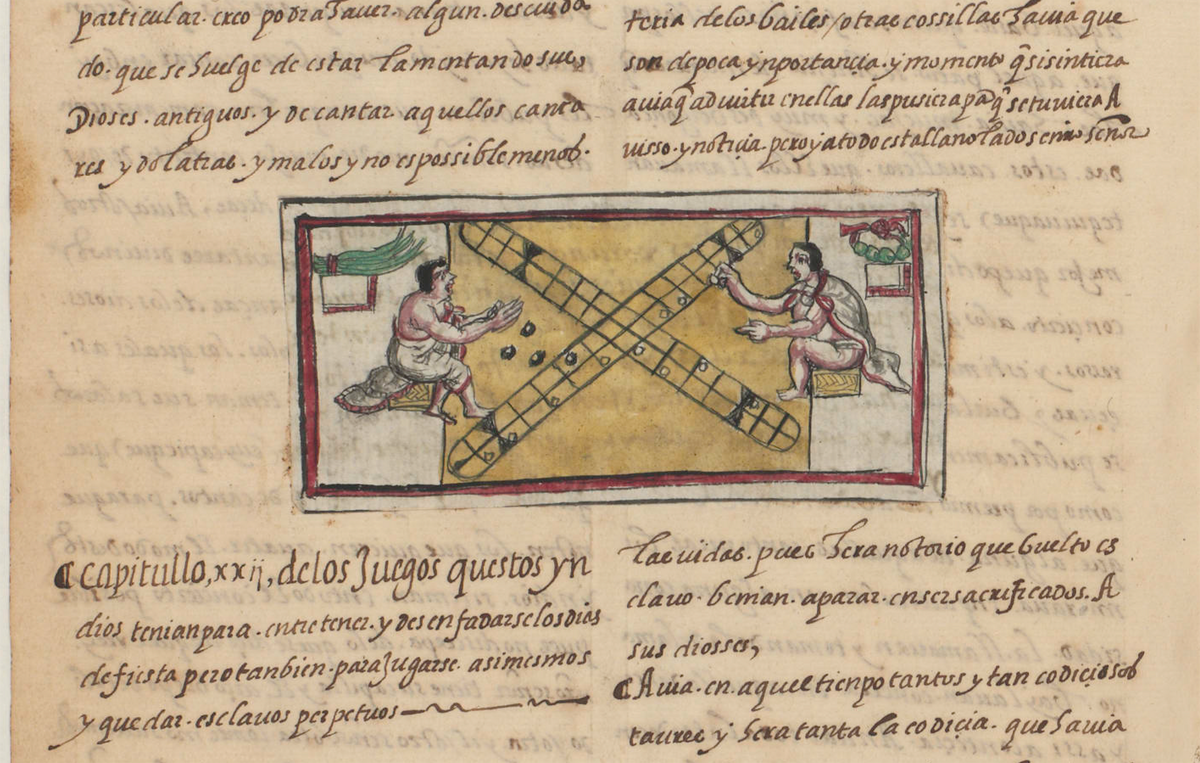 particular. creo podra haver. algun. descuida
do. que se huelge de estar lamentando sus,
Dioses. antiguos. y de cantar aquellos canta
res ydolatras. y malos y no es possible menos.
Capitullo, xxij, de los Juegos questos yn
dios tenian para. entretener. y desenfadarse los dias
de fiesta pero tanbien. para Jugarse. asi mesmos
y quedar. esclavos perpetuos
teria de los bailes / otras cossillas havia que
son de poca ynportancia. y momento q̃ si sintiera
avia q̃ advirtir en ellas las pusiera pa q̃ se tuviera A
visso. y noticia. pero ya todo esta llano loado sea nr̃o señor
las vidas. pues hera notorio que buelto es
clavo. benian. a parar. en ser sacrificados. A
sus diosses,
Avia. en. aquel tienpo tantos y tan codiciosos
taures y hera tanta la codicia. que havia